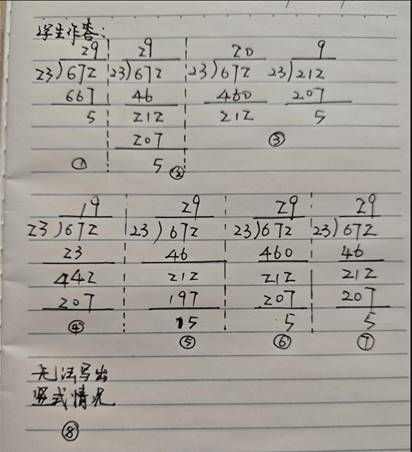 学生作答:
29 29 20 9
23)672 23)672 23)672 23)212
667 46 460 207
5 212 212 5
207
5
① ② ③
19 29 29 29
23)672 23)672 23)672 23)672
23 46 460 46
442 212 212 212
207 197 207 207
15 5 5
④ ⑤ ⑥ ⑦
无法写出
竖式情况
⑧